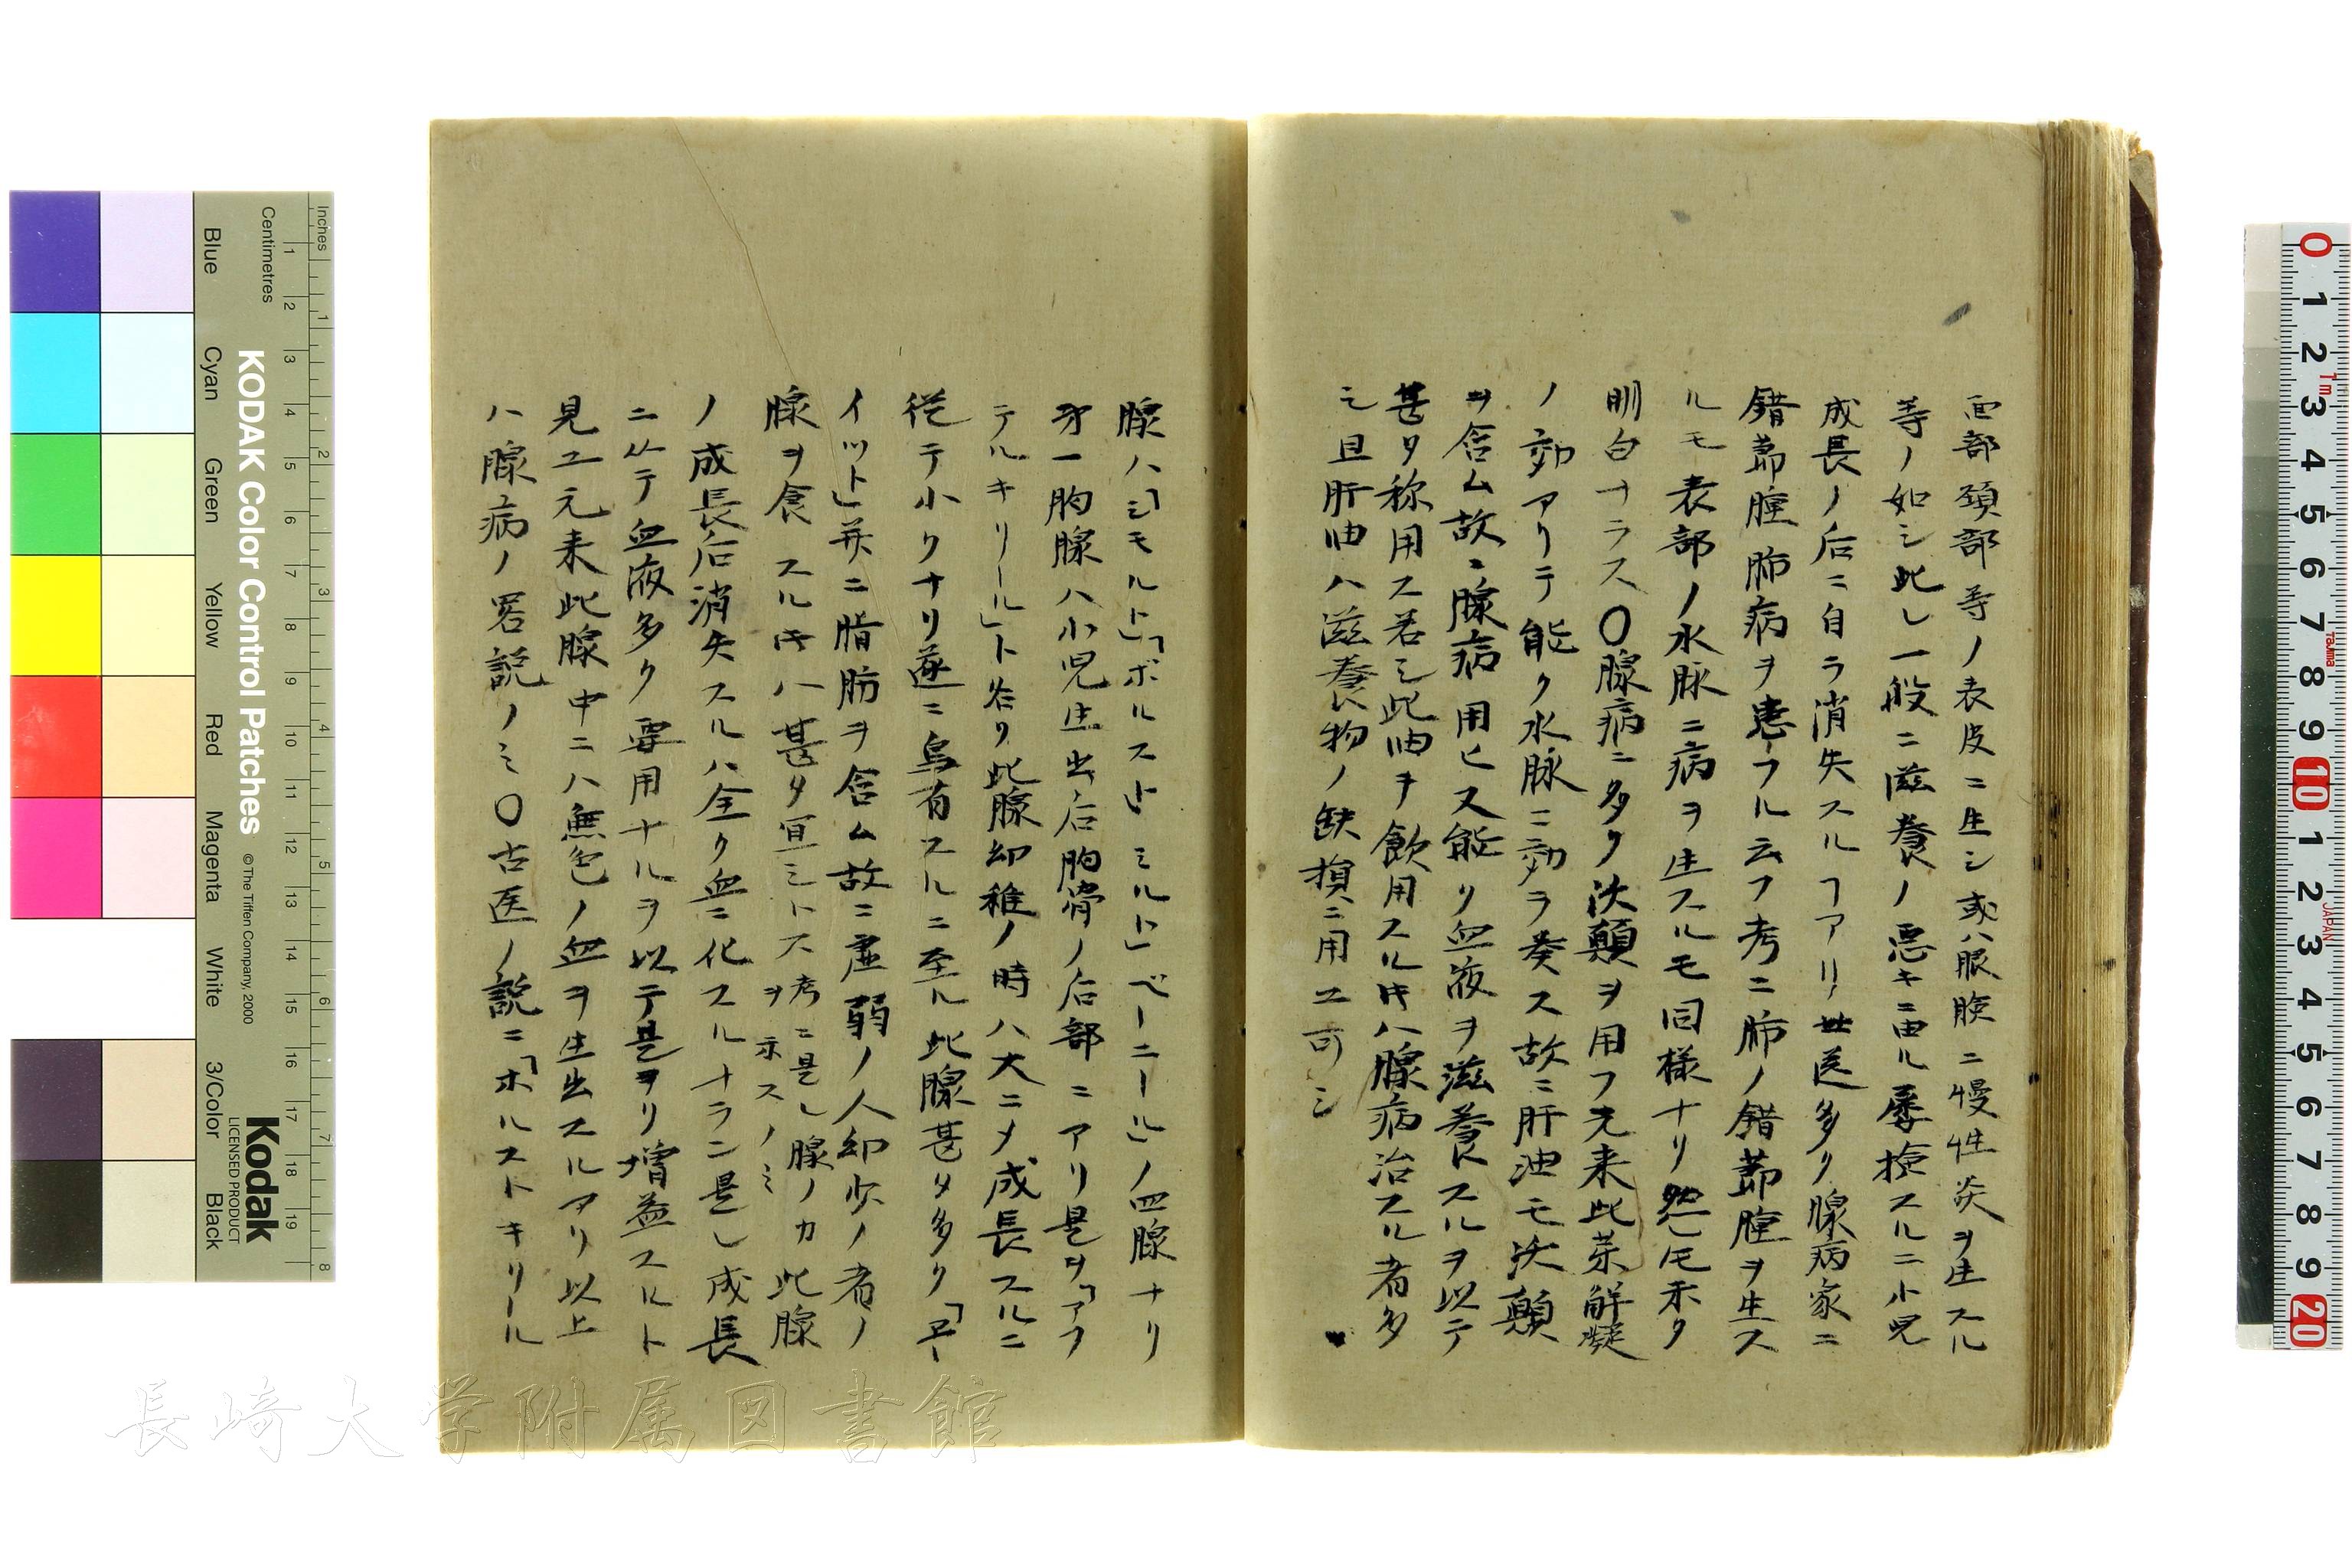 面部頚部等ノ表皮ニ生シ或ハ眼瞼ニ慢性炎ヲ生スル
等ノ如シ此レ一般ニ滋養ノ悪キニ由ル屡撿スルニ小児
成長ノ后ニ自ラ消失スルヿアリ世医多ク腺病家ニ
錯節腫肺病ヲ患フル云フ考ニ肺ノ錯節腫ヲ生ス
ルモ表部ノ水脉ニ病ヲ生スルモ同様ナリ然レ𪜈未タ
明白ナラス〇腺病ニ多ク沃顛ヲ用フ元来此薬解凝
ノ効アリテ能ク水脉ニ効ラ奏ス故ニ肝油モ沃顛
ヲ含ム故ニ腺病用ヒス能ク血液ヲ滋養スルヲ以テ
甚タ称用ス若シ此油ヲ飲用スル𪜈ハ腺病治スル者多
シ且肝油ハ滋養物ノ缺損ニ用ユ可シ
腺ハ「シモルト」「ボルスト」ミルト」ベーニール」ノ四腺ナリ
第一胸腺ハ小児生出后胸骨ノ后部ニアリ是ヲ「アフ
テルキリール」ト名ク此腺幼稚ノ時ハ大ニメ成長スルニ
従テ小クナリ遂ニ烏有スルニ至ル此腺甚タ多ク「ヱー
イット」并ニ脂肪ヲ含ム故ニ虚弱ノ人幼少ノ者ノ
腺ヲ食スル𪜈ハ甚タ宜シトス考ニ是レ腺ノカ
ヲ示スノミ此腺
ノ成長后消失スルハ全ク血ニ化スルナラン是レ成長
ニ从テ血液多ク要用ナルヲ以テ是ヲリ増益スルト
見ユ元来此腺中ニハ無色ノ血ヲ生出スルアリ以上
ハ腺病ノ畧説ノミ〇古医ノ説ニ「ホルストキリール
Inches
Centimetres
Blue
Cyan
Green
Yellow
Red
Magenta
White
3/Color
Black
KODAK Color Control Patches
© The Tiffen Company, 2000
Kodak
LICENSED PRODUCT
長崎大学附属図書館
Tajima
JAPAN